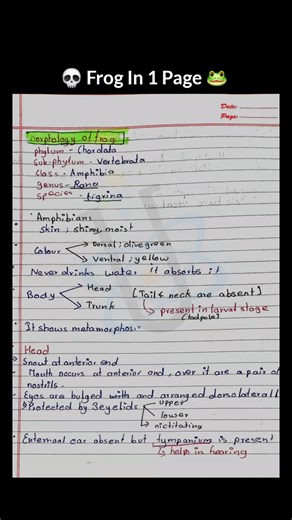 💀 Frog In 1 Page 🐸
Date:
Page:
Morphology of frog
Phylum - Chordata
Sub-phylum - Vertebrata
Class - Amphibia
genus - Rana
species - tigrina
Amphibians
skin ; shiny, moist
Colour → Dorsal ; olive green
→ Ventral ; yellow
Never drinks water it absorbs it
Body → Head
→ Trunk
[Tail & neck are absent]
↳ present in larval stage
(tadpole)
It shows metamorphosis
Head
Snout at anterior end
Mouth occurs at anterior end, over it are a pair of
nostrils.
Eyes are bulged with and arranged dorsolaterall
Protected by 3 eyelids → upper
→ lower
→ nictitating
External ear absent but tympanium is present
↳ help in hearing